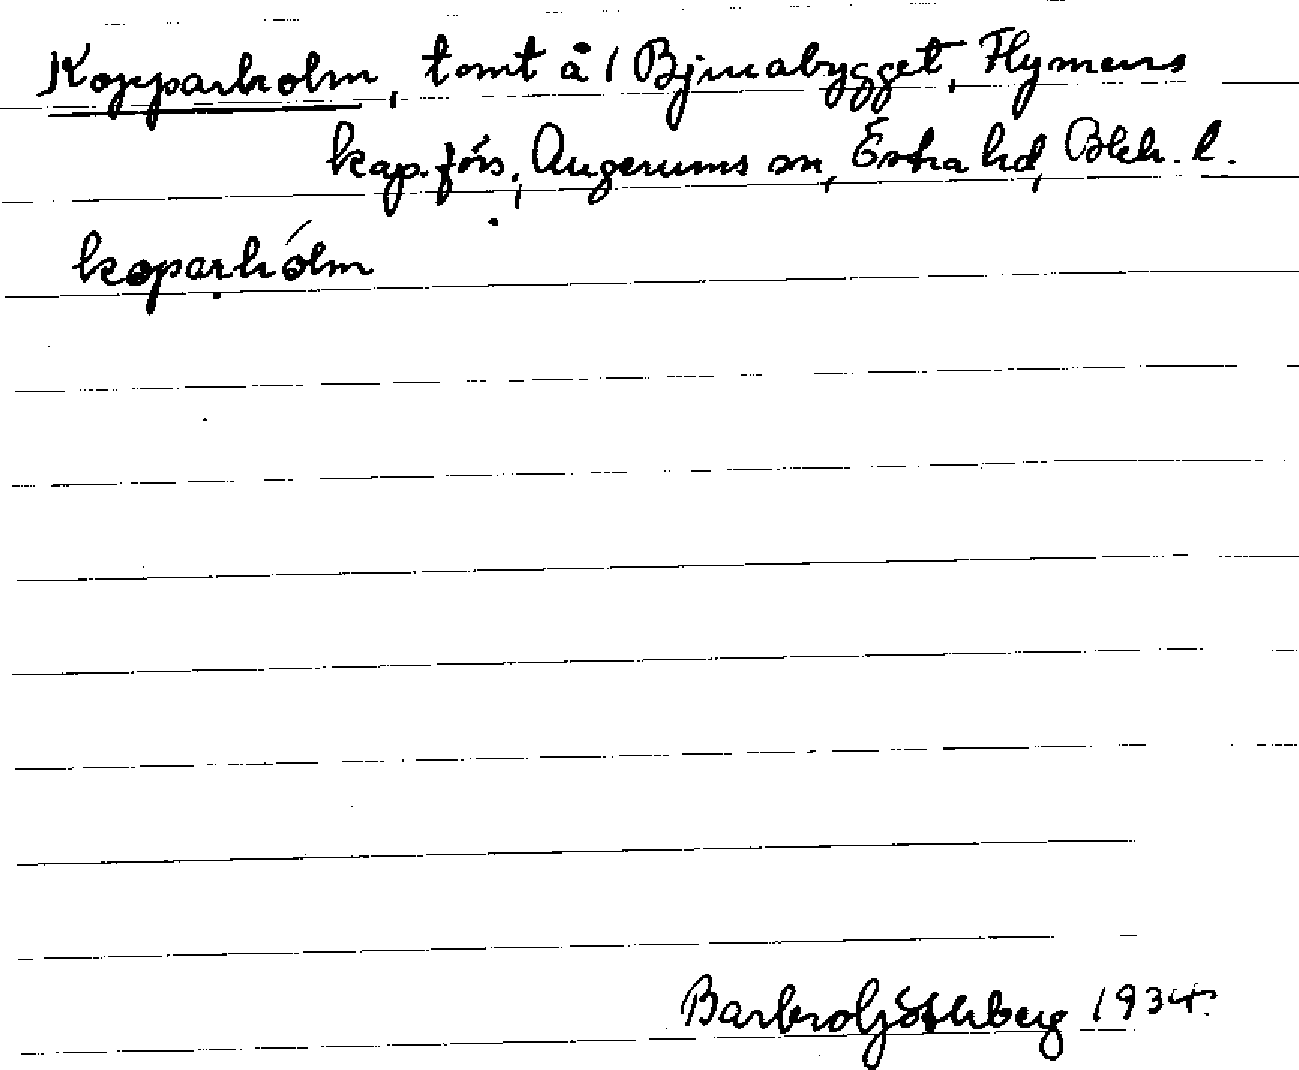 Kopparholm, tomt å 1 Bjurabygget, Flymens
kap. förs., Augerums sn, Östra hd, Blek. l.
koparhólm
Barbro Götherberg 1934.